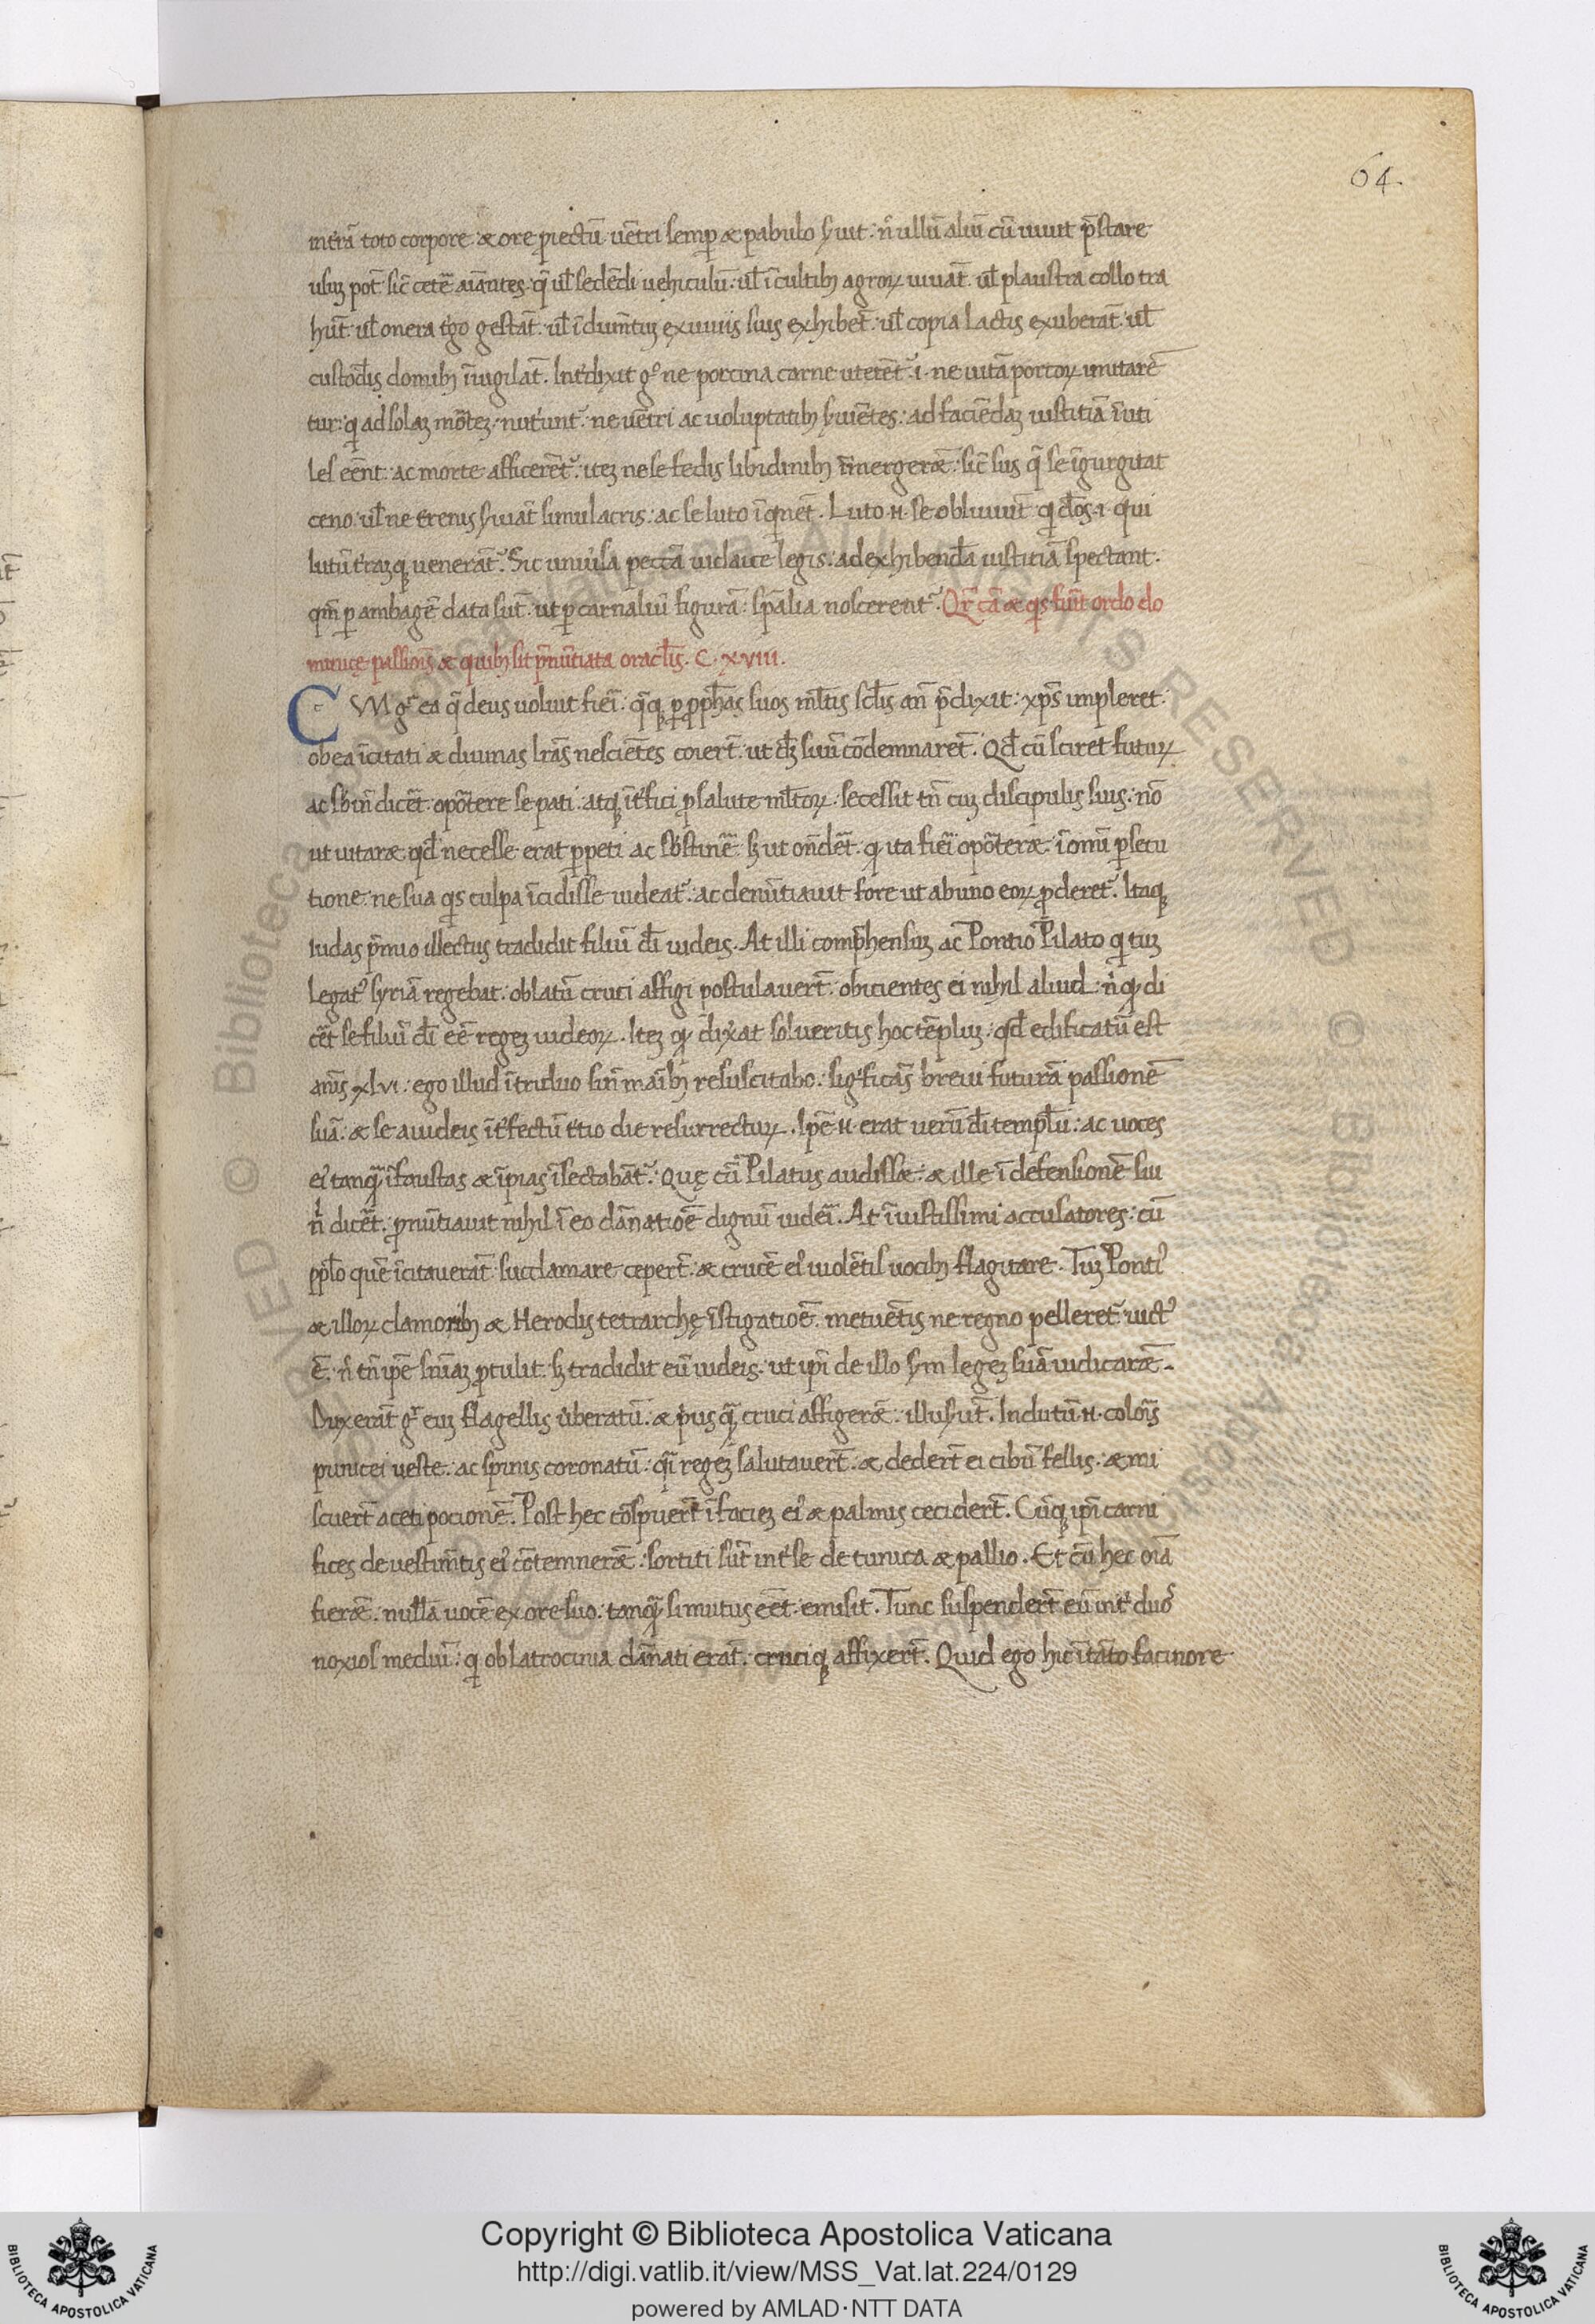 64
int̄rā toto corpore · & ore p̄iectū uētri semp & pabulo ẜuit : n̄ ullū aliū cū uiuit p̄stare
usuȝ pot̄ sic̄ cetē aīantes · q̄ ul̄ sedēdi uehiculū · ul̄ ī cultibȝ agroꝝ iuuāt · ul̄ plaustra collo tra
hūt · ul̄ onera t̄go gestāt · ul̄ īdum̄tuȝ exuuiis suis exhibēt · ul̄ copia lactis exuberāt · ul̄
custod̄is domibȝ īuigilāt . Int̄dixit gͦ ne porcina carne uterēt᷑ · i · ne uitā porcoꝝ imitarē
tur : qi ad solaȝ mōteȝ · nut̄unt᷑ · ne uētri ac uoluptatibȝ ẜuiētes : ad faciēdaȝ iustitiā īuti
les eēnt : ac morte afficerēt᷑ · iteȝ ne se fedis libidinibȝ īmergerēt : sic̄ sus q̄ se īgurgitat
ceno · ul̄ ne t̄renis ẜuiāt simulacris : ac se luto īqnēt . Luto · H · se obliuiūt qi d̄os · i · qui
lutū t̄raȝqꝫ uenerāt᷑ . Sic uniu̓sa p̄ccā iudaice legis : ad exhibendā iustitiā spectant .
qm̄ ꝑ ambagē data sūt · ut ꝑ carnaliū figurā : sp̄alia noscerent᷑ · Qr̄ cā & qis fu̓it ordo do
minicę passiōis & quibȝ sit p̄nūtiata oracl̄is . C · XVIII .
CVM gͦ ea q̄ deus uoluit fiēi : q̄qꝫ ꝑ ꝓph̄as suos ml̄tis scl̄is an̄ p̄dixit : xp̄s impleret
ob ea īcitati & diuinas lr̄as nesciētes coiert̄ · ut d̄ȝ suū cōdemnarēt . Qd̄ cū sciret futuꝝ
ac sb̄in̄ dicēt · opōtere se pati · atqꝫ īt̄fici ꝓ salute ml̄toꝝ · secessit tn̄ cuȝ discipulis suis : nō
ut uitaret qd̄ necesse erat ꝑpeti ac sb̄stinē · sȝ ut on̄dēt · qꝫ ita fiēi opōteret · ī omī ꝑsecu
tione · ne sua qis culpa īcidisse uideat᷑ · ac denūtiauit fore ut ab uno eoꝝ ꝓderet᷑ . Itaqꝫ
Iudas p̄mio illectus tradidit filiū dī iudeis . At illi comp̄hensuȝ ac Pontio Pilato qi tuȝ
legatꝰ syriā regebat · oblatū cruci affigi postulauert̄ · obicientes ei nihil aliud · n̄ qꝫ di
cēt se filiū dī eē regeȝ iudeoꝝ . Iteȝ qꝫ dix̄at solueritis hoc tēpluȝ · qd̄ edificatū est
an̄is xlvi : ego illud ī triduo sin̄ maībȝ resuscitabo : sig̓ficās breui futurā passionē
suā : & se a iudeis īt̄fectū t̄tio die resurrectuꝝ . Ip̄e · H · erat uerū dī templū : ac uoces
eiꝰ tanqȝ īfaustas & īpias īsectabāt᷑ . Quę cū Pilatus audisset : & ille ī defensionē sui
n̄ dicēt · ꝓnūtiauit nihil ī eo dānatiōe dignū uidēi . At īiustissimi accusatores : cū
ppl̄o quē īcitauerāt · succlamare cepert̄ : & crucē eiꝰ uiolētis uocibȝ flagitare . Tuȝ Pontiꝰ
& illoꝝ clamoribȝ & Herodis tetrarchę īstigatiōe · metuētis ne regno pelleret᷑ · uictꝰ
ē · n̄ tn̄ ip̄e sn̄iaȝ ꝓtulit · sȝ tradidit eū iudeis · ut ip̄i de illo ẜm legeȝ suā iudicarēt .
Duxerāt gͦ euȝ flagellis ūberatū : & p̓usqȝ cruci affigerēt : illusūt . Indutū · H · colōis
punicei ueste · ac spinis coronatū : qi regeȝ salutauert̄ : & dedert̄ ei cibū fellis : & mi
scuert̄ aceti pocionē . Post hec cōspuert̄ ī facieȝ eiꝰ & palmis cecidert̄ . Cūqꝫ ip̄i carni
fices de uestim̄tis eiꝰ cōtemnerēt : sortiti sūt int̄ se de tunica & pallio . Et cū hec oīa
fierēt : nullā uocē ex ore suo : tanqȝ si mutus eēt · emisit . Tunc suspendert̄ eū int̄ duoꝰ
noxios mediū : qi ob latrocinia dānati erāt · cruciqꝫ affixert̄ . Quid ego hic ī tāto facinore
Copyright © Biblioteca Apostolica Vaticana
http://digi.vatlib.it/view/MSS_Vat.lat.224/0129
powered by AMLAD·NTT DATA